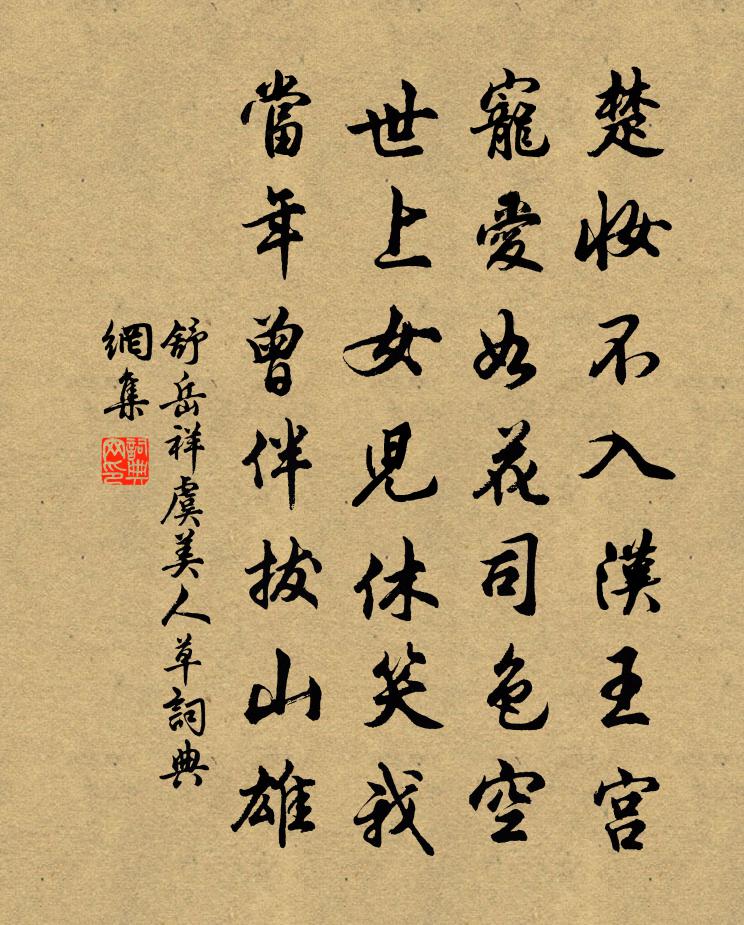 楚妝不入漢王宮
寵愛如花司色空
世上女兒休笑我
當年曾伴拔山雄
舒岳祥虞美人草詞典
網集
詞典網印